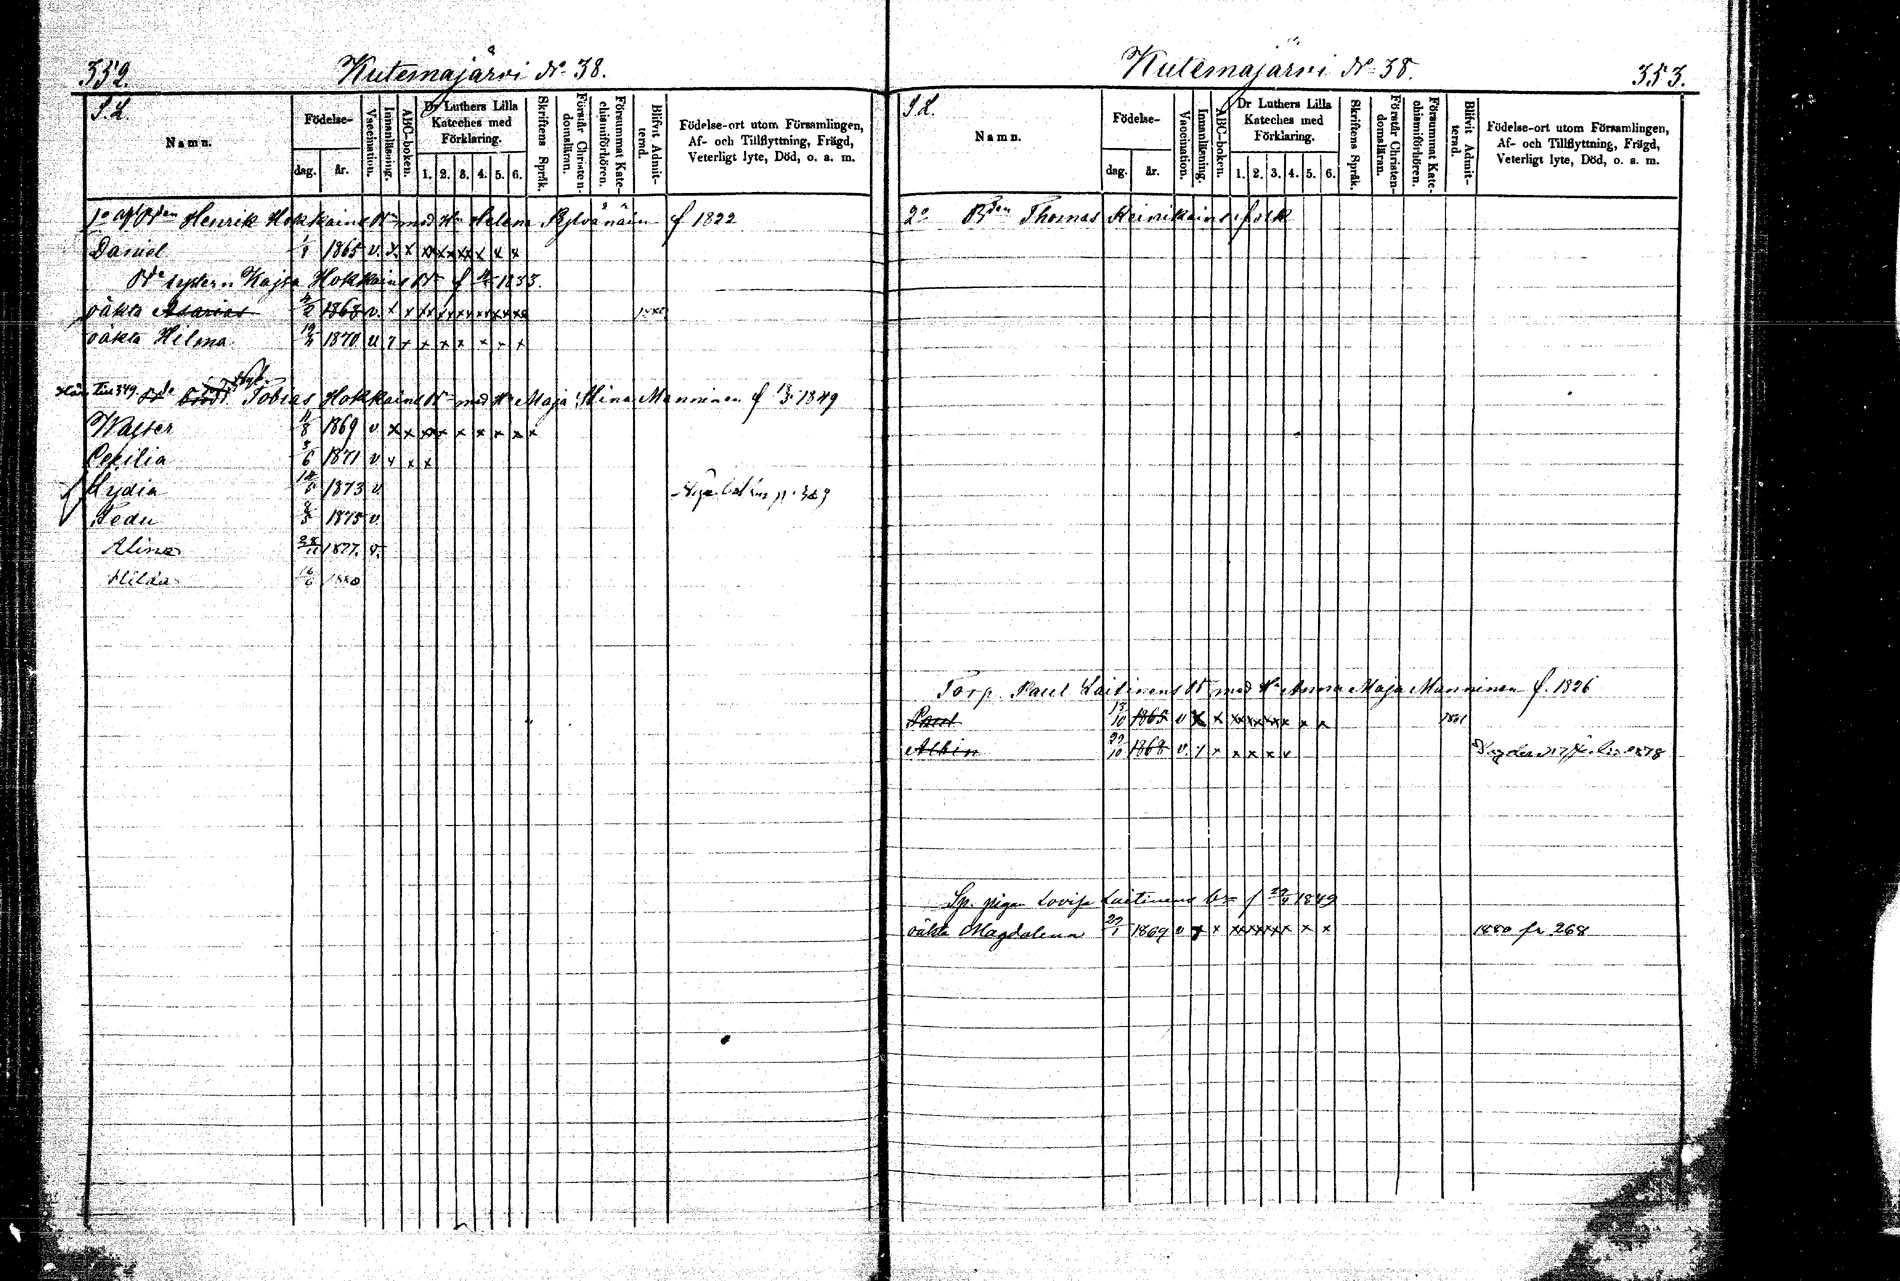 352.
Kutemajärvi No 38.
S. L.
Namn.
Födelse-
dag. år.
Vaccination.
Innanläsning.
ABC-boken.
Dr Luthers Lilla
Kateches med
Förklaring.
1. 2. 3. 4. 5. 6.
Skriftens Språk.
Förstår Christen-
domsläran.
Försummat Kate-
chismiförhören.
Blifvit Admit-
terad.
Födelse-ort utom Församlingen,
Af- och Tillflyttning, Frägd,
Veterligt lyte, Död, o. a. m.
1o Henrik Hokkaines med Hu Helena Sylvänäin f 1822
Daniel 1865 v. x x xx xx xx x x x
syster Kajsa Hokkains f 1833
oäkta Asarias 1868 v. x x xx xx xx xx xx
oäkta Hilma 1870 v x x x x x x x
Tobias Hokkaines med Hu Maja Stina Manninen f 13/3 1849
Walter 11/8 1869 v x x xx x x x x x x
Cecilia 1871 v. x x x
Lydia 1873 v.
Fedu 1875 v.
Alina 28/11 1877. v.
Hilda 16/6 1880
353.
Kutemajärvi No 38.
S. L.
Namn.
Födelse-
dag. år.
Vaccination.
Innanläsning.
ABC-boken.
Dr Luthers Lilla
Kateches med
Förklaring.
1. 2. 3. 4. 5. 6.
Skriftens Språk.
Förstår Christen-
domsläran.
Försummat Kate-
chismiförhören.
Blifvit Admit-
terad.
Födelse-ort utom Församlingen,
Af- och Tillflyttning, Frägd,
Veterligt lyte, Död, o. a. m.
2o Bden Thomas Heinikains folk
Torp. Paul Laitinens med Hu Anna Maja Manninen f. 1826
Paul 13/10 1865 v x x xx xx xx x x x 1881
Albin 22/10 1868 v. x x x x x x 1878
Sp. pigan Lovisa Laitinens f 1849
oäkta Magdalena 29/1 1869 v x x xx xx xx x x x 1880 fr. 268